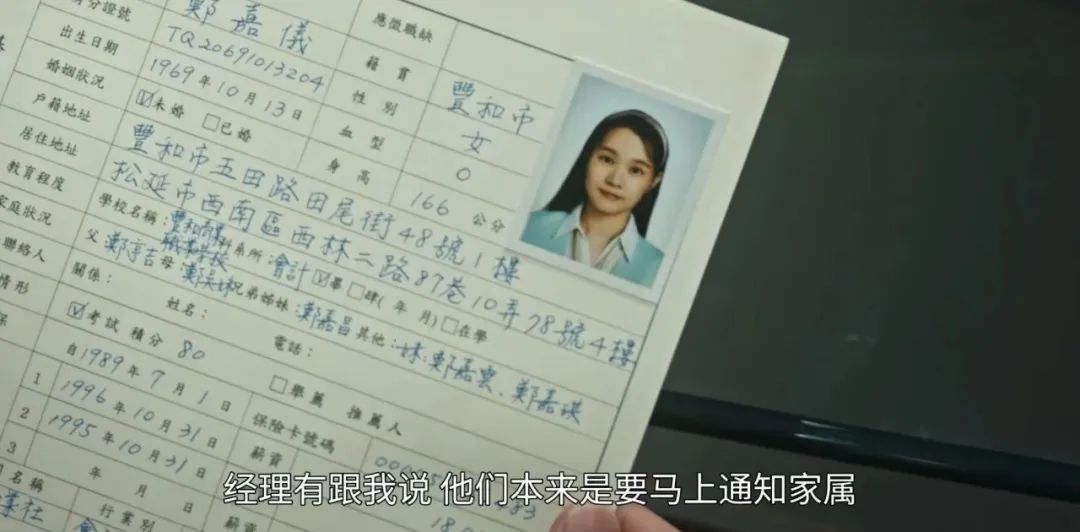 鄭嘉儀 應徵職缺
身分證號 TQ20691013204 籍貫 豐和市
出生日期 1969年10月13日 性別 女
婚姻狀況 ☑未婚 □已婚 血型 O
身高 166 公分
戶籍地址 豐和市五田路田尾街48號1樓
居住地址 松延市西南區西林二路87巷10弄78號4樓
教育程度 學校名稱:豐和 科系所:會計 ☑畢 □肄( 年 月) □在學
家庭狀況 父 鄭亨吉 母 兄弟姊妹:鄭嘉昌 其他:妹:鄭嘉雲、鄭嘉瑛
聯絡人 關係: 姓名: 電話:
情形 ☑考試 積分 80 □舉薦 推薦人
保 自1989年7月1日 保險卡號碼
1 1996年10月31日 薪資
2 1995年10月31日 薪資
3 年 月 日
名稱 行業別 薪資
经理有跟我说 他们本来是要马上通知家属